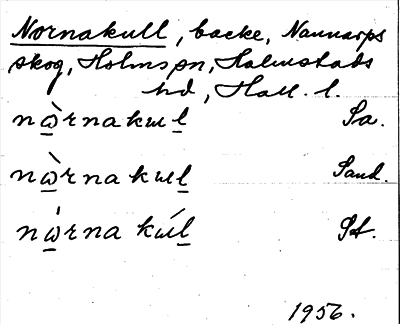 Nornakull, backe, Nannarps
skog, Holms sn, Halmstads
hd, Hall. l.
nὼ̲rnakul̲ Sa.
nὼ̲rnakul̲ Sand.
nω̲̍rna kúl̲ St.
1956.